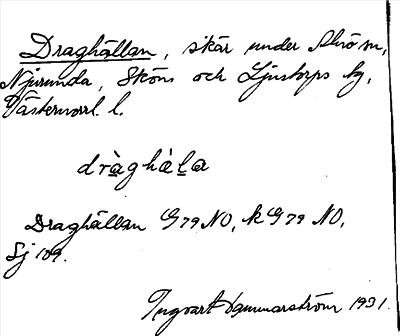 Draghällan, skär under Alnö sn,
Njurunda, Sköns och Ljustorps tg,
Västernorrl. l.
dràghàḷa
Draghällan G 79 NO, k G 79 NO,
Sj 109.
Ingvart Hammarström 1931.